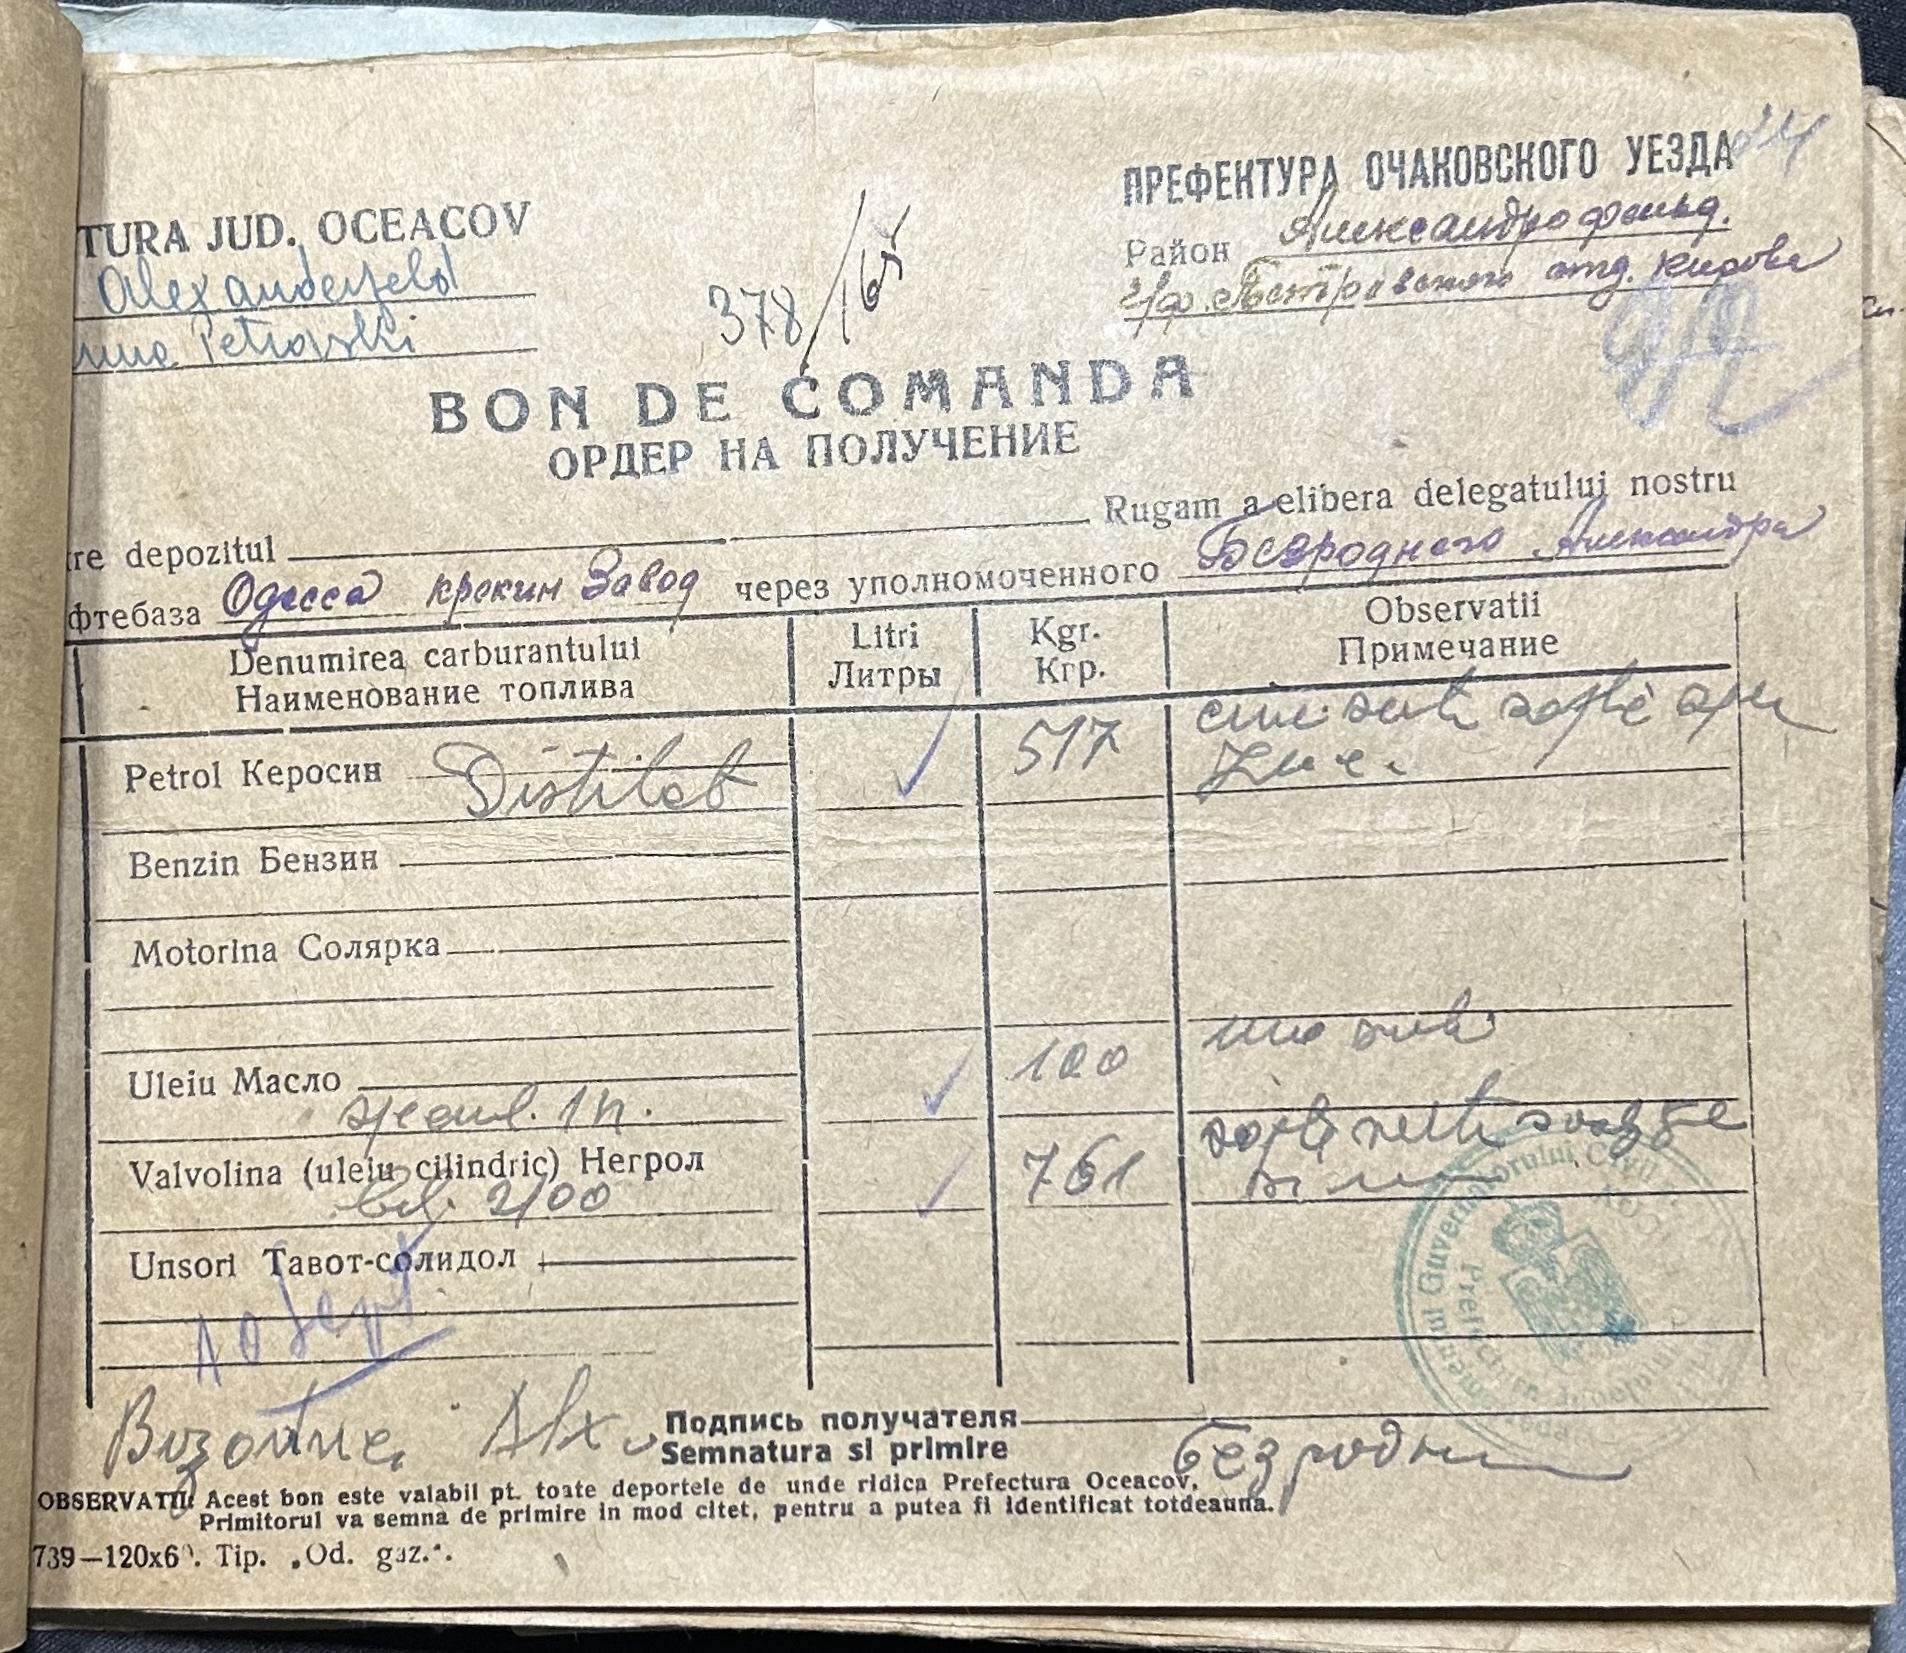 ПРЕФЕКТУРА ОЧАКОВСКОГО УЕЗДА
TURA JUD. OCEACOV
Район Александрофельд.
Alexanderfeld
Petrovski
отд. Кирова
378/165
BON DE COMANDA
ОРДЕР НА ПОЛУЧЕНИЕ
re depozitul Rugam a elibera delegatului nostru
фтебаза Одесса крекин Завод через уполномоченного Безродного Александра
Denumirea carburantului Litri Kgr. Observatii
Наименование топлива Литры Кгр. Примечание
cinci sute sapte spre
zece.
Petrol Керосин Distilat 517
Benzin Бензин
Motorina Солярка
una suta
Uleiu Масло 100
sapte sute
Valvolina (uleiu cilindric) Негрол 761
2100
Unsori Тавот-солидол
10 Sept.
Подпись получателя
Semnatura si primire
Безродн
OBSERVATII: Acest bon este valabil pt. toate deportele de unde ridica Prefectura Oceacov,
Primitorul va semna de primire in mod citet, pentru a putea fi identificat totdeauna.
739—120x6. Tip. „Od. gaz.".